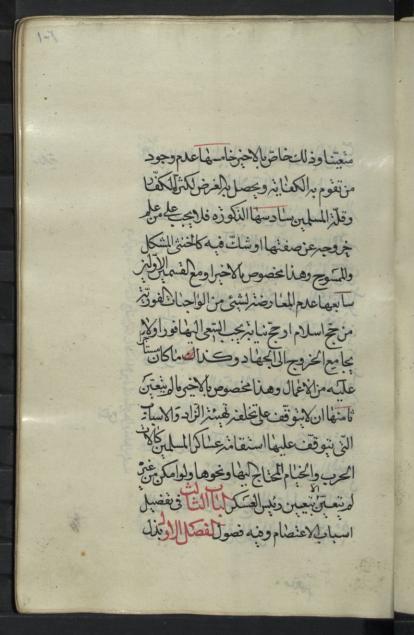 متعيّنا وذلك خاص بالاخير خامسها عدم وجود
من تقوم به الكفاية ويحصل به الغرض لكثرة الكفار
وقلة المسلمين سادسها الذكورة فلا يجب على من علم
خروجه عن صفتها او شك فيه كالخنثى المشكل
والممسوح وهذا مخصوص بالاخير او مع القسمين الاولين
سابعها عدم المعارضة لشيء من الواجبات الفورية
من حج اسلام او حج نيابة يجب السعي اليها فورا ولا
يجامع الخروج الى الجهاد وكذلك ما كان
عليه من الاعمال وهذا مخصوص بالاخير ما لم يتعين
ثامنها ان لا يتوقف على تخلفه تهيئة الزاد والاسباب
التي يتوقف عليها استقامة عساكر المسلمين كالات
الحرب والخيام المحتاج اليها ونحوها ولو امكن من غيره
لم يتعين الا بتعيين رئيس العسكر الباب الثالث في تفصيل
اسباب الاعتصام وفيه فصول الفصل الاول